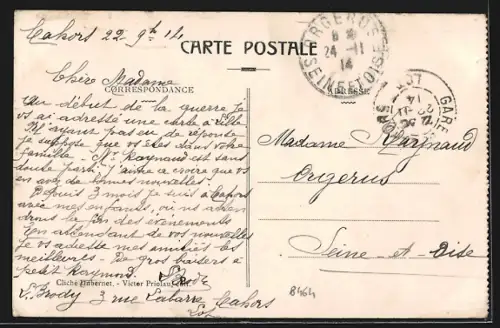 Cahors 22 9bre 14
CARTE POSTALE
ORGERUS
24 -11
14
SEINE ET OISE
Chère Madame
CORRESPONDANCE
ADRESSE
Au début de la guerre je
vs ai adressé une carte à
N'ayant pas eu de réponse
je suppose que vs êtes dans votre
famille. Mr Raynaud est sans
doute parti. J'aime à croire que vs
en avez de bonnes nouvelles.
Depuis 3 mois je suis à Cahors
avec mes enfants, où ns atten
drons la fin des évènements
En attendant de vos nouvelles
je vs adresse mes amitiés les
meilleures. De gros baisers à
petit Raymond. S. Brody
Cliché Habernet. - Victor
S. Brody 3 rue Cahors
Lot
GARE
LOT
Madame Raynaud
Orgerus
Seine-et-Oise
8464